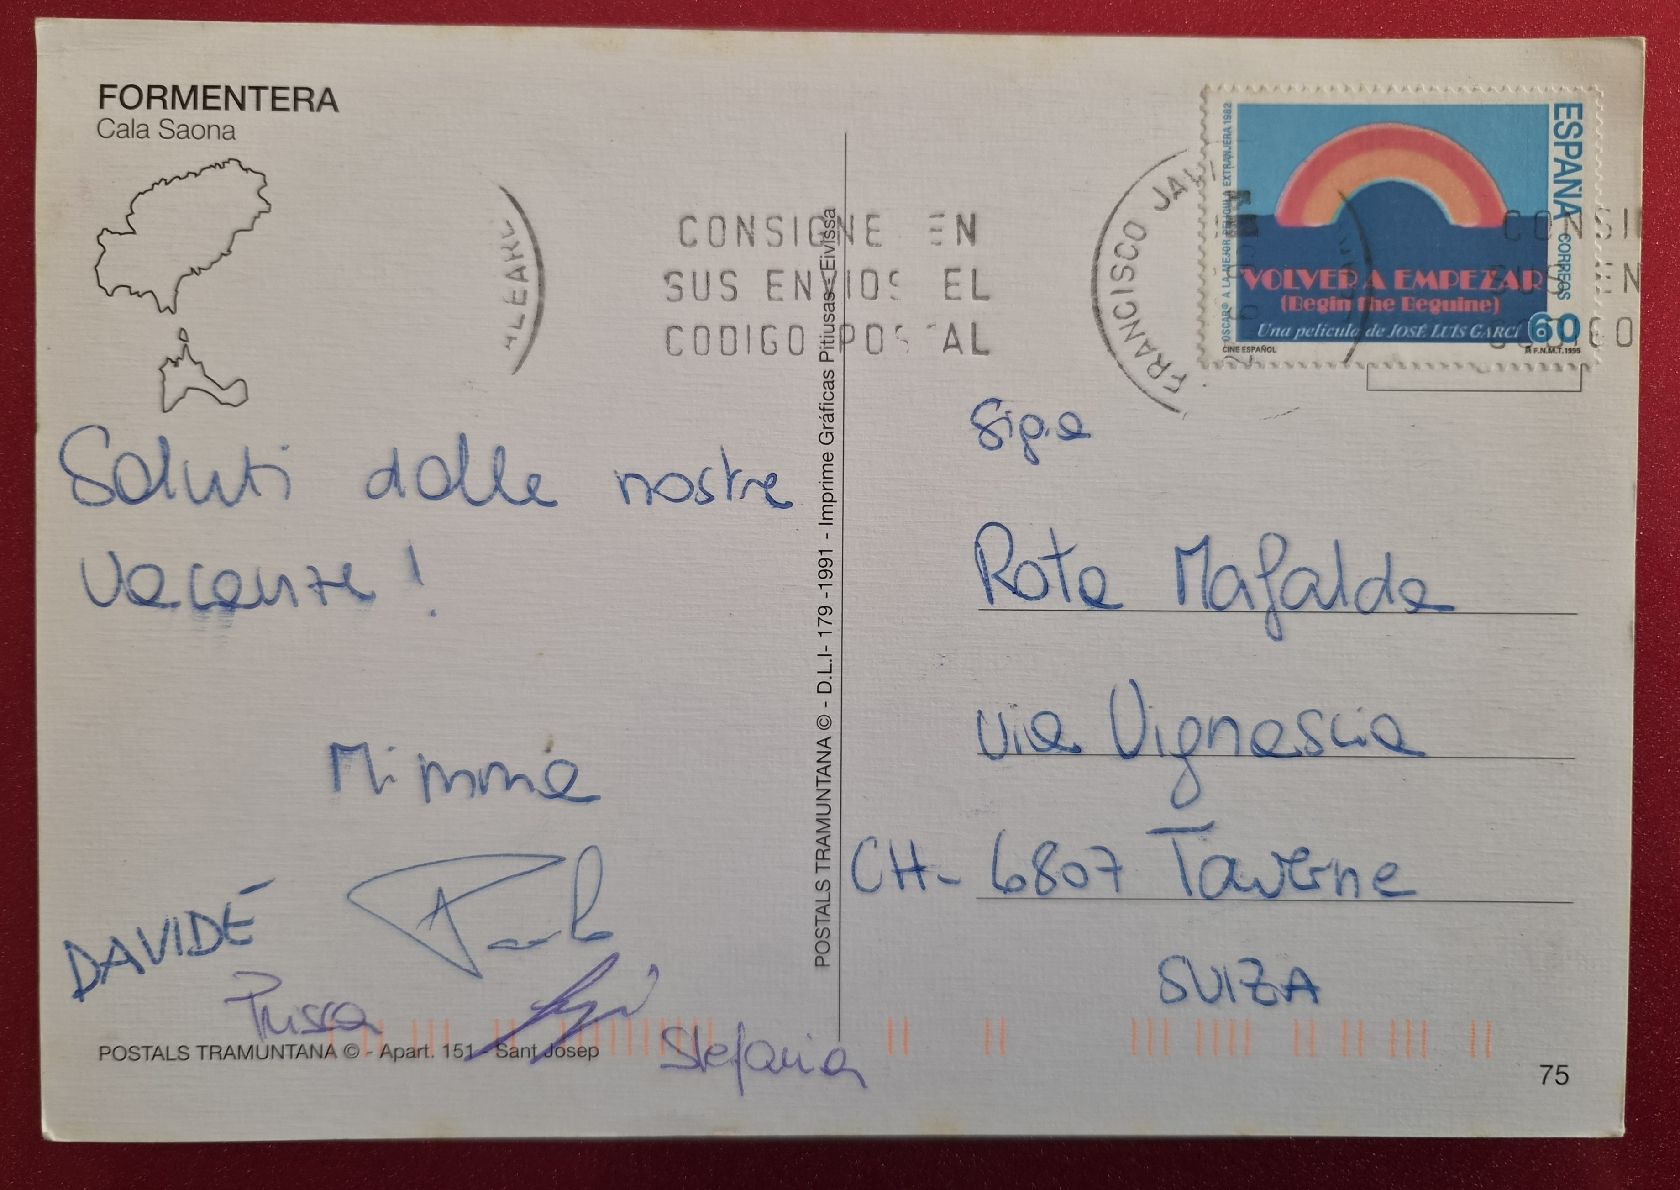 FORMENTERA
Cala Saona
CONSIGNE EN
SUS ENVIOS EL
CODIGO POSTAL
FRANCISCO
ESPAÑA CORREOS
OSCAR® A LA MEJOR PELICULA EXTRANJERA 1982
VOLVER A EMPEZAR
(Begin the Beguine)
Una película de JOSÉ LUIS GARCI
60
CINE ESPAÑOL
F.N.M.T. 1995
Saluti dalle nostre
vacanze!
Mimma
DAVIDE
Paola
Prissca
Stefania
POSTALS TRAMUNTANA © - Apart. 151 - Sant Josep
POSTALS TRAMUNTANA © - D.L.I- 179 -1991 - Imprime Gráficas Pitiusas - Eivissa
Sig.a
Rota Mafalda
via Vignascia
CH- 6807 Taverne
SVIZA
75